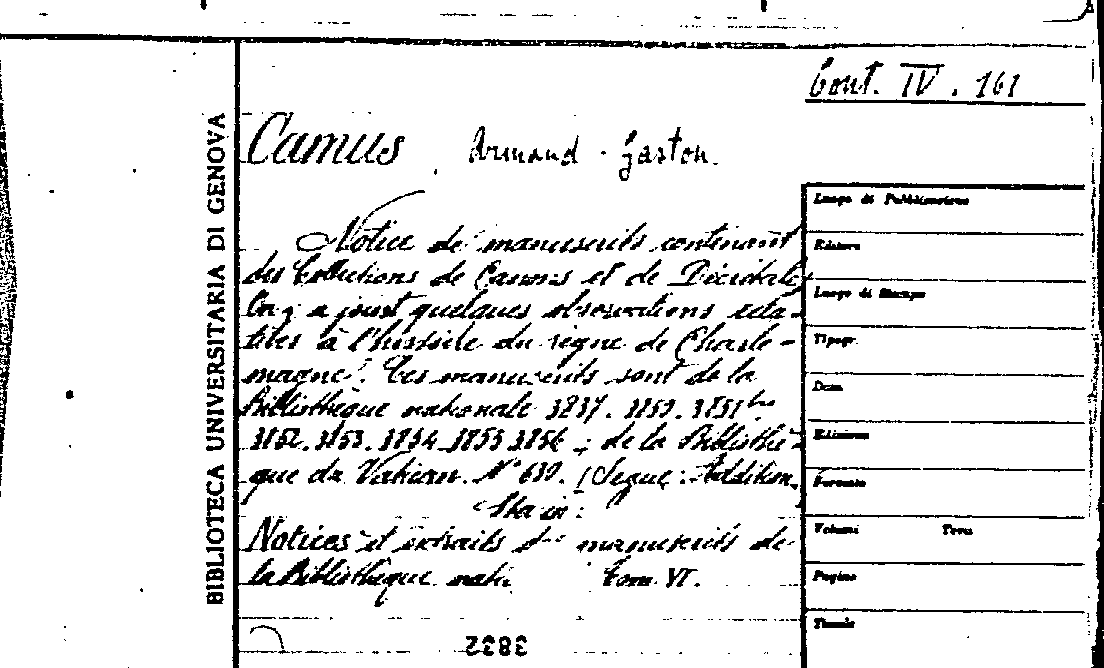 Cont. IV. 161
BIBLIOTECA UNIVERSITARIA DI GENOVA
Camus Armand-Gaston.
Notice de manuscrits contenant
des Collections de Canons et de Décrétales
On y a joint quelques observations rela-
tives à l'histoire du règne de Charle-
magne. Ces manuscrits sont de la
Bibliothèque nationale 3837. 3850. 3851 bis
3852. 3853. 3854. 3855 3856; de la Bibliothè-
que du Vatican. N° 630. (Segue: Addition.
Sta in:
Notices et extraits des manuscrits de
la Bibliothèque nat. Tom. VI.
Luogo di Pubblicazione
Editore
Luogo di Stampa
Tipogr.
Data
Edizione
Formato
Volumi Tomi
Pagine
Tavole
3832